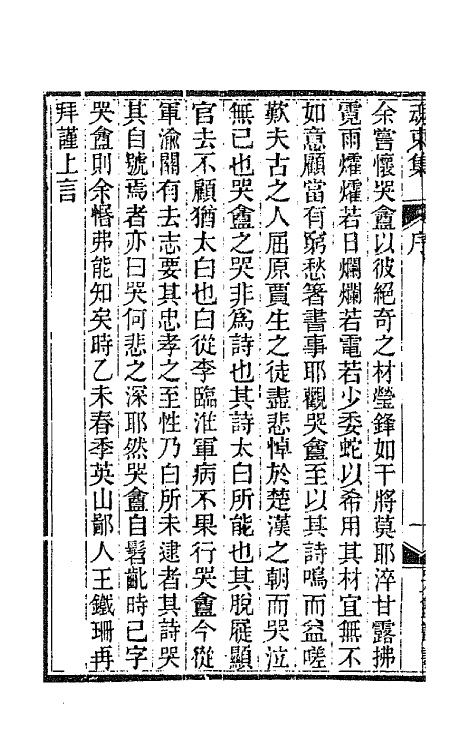 魂東集 序 一
余嘗懷哭盦以彼絕奇之材瑩鋒如干將莫耶淬甘露拂
霓雨燿燿若日爛爛若電若少委蛇以希用其材宜無不
如意顧當有窮愁箸書事耶觀哭盦至以其詩鳴而益嗟
歎夫古之人屈原賈生之徒盡悲悼於楚漢之朝而哭泣
無已也哭盦之哭非爲詩也其詩太白所能也其脫屣顯
官去不顧猶太白也白從李臨淮軍病不果行哭盦今從
軍渝關有去志要其忠孝之至性乃白所未逮者其詩哭
其自號焉者亦曰哭何悲之深耶然哭盦自髫齔時己字
哭盦則余憯弗能知矣時乙未春季英山鄙人王鐵珊再
拜謹上言